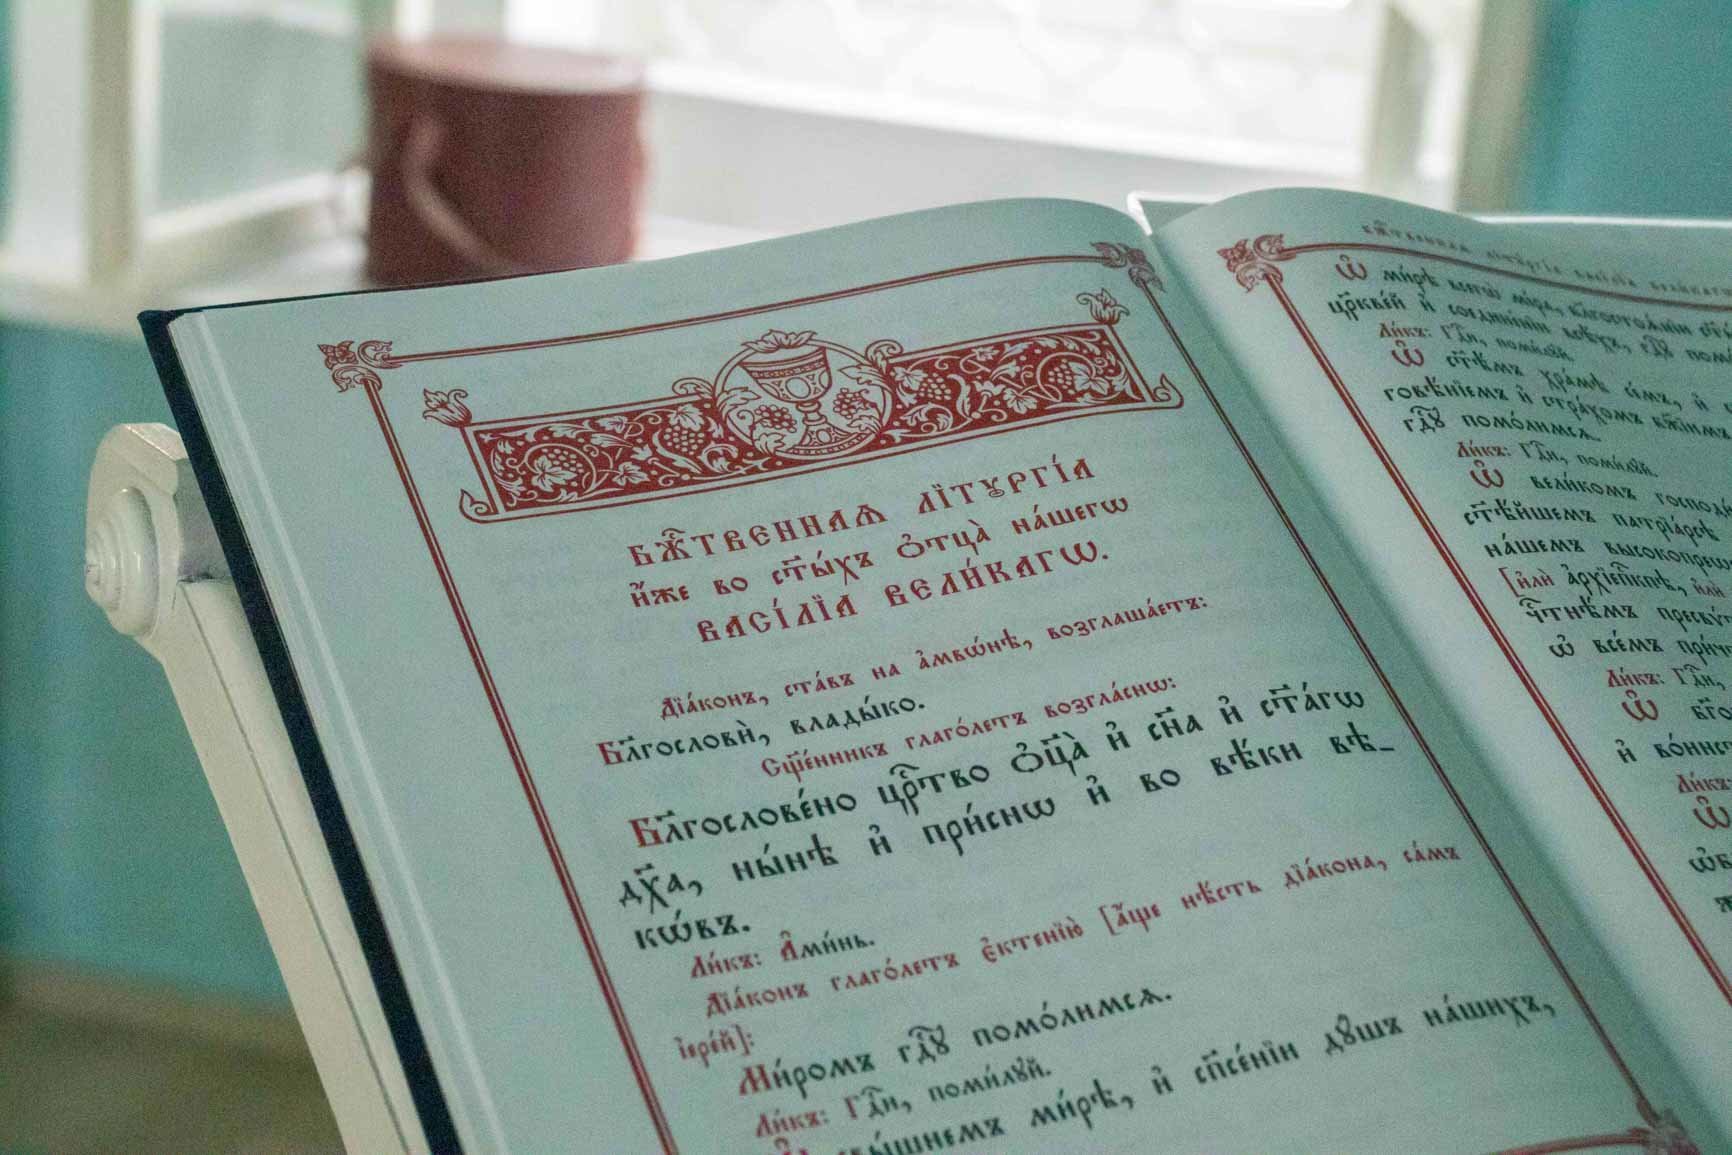 БЖ҃ТВЕННАѦ ЛЇТꙊРГІ́А
и҆́же во ст҃ы́хъ ѻ҆тца̀ на́шегѡ
ВАСІ́ЛЇА ВЕЛИ́КАГѠ.
Дїа́конъ, ста́въ на а҆мвѡ́нѣ, возглаша́етъ:
Бл҃гословѝ, влады́ко.
Сщ҃е́нникъ глаго́летъ возгла́снѡ:
Бл҃гослове́но црⷭ҇тво ѻ҆ц҃а̀ и҆ сн҃а и҆ ст҃а́гѡ
дх҃а, ны́нѣ и҆ при́снѡ и҆ во вѣ́ки вѣ-
кѡ́въ.
Ли́къ: А҆ми́нь.
Дїа́конъ глаго́летъ є҆ктенїю̀ [а҆́ще нѣ́сть дїа́кона, са́мъ
і҆ере́й]:
Ми́ромъ гдⷭ҇ꙋ помо́лимсѧ.
Ли́къ: Гдⷭ҇и, поми́лꙋй.
вы́шнемъ ми́рѣ, и҆ сп҃се́нїи дꙋ́шъ на́шихъ,
БЖ҃ТВЕННАѦ ЛЇТꙊРГІА ВАСІЛЇА
Ѡ҆ ми́рѣ всегѡ̀ мі́ра, бл҃гостоѧ́нїи
цр҃кве́й и҆ соедине́нїи всѣ́хъ, гдⷭ҇ꙋ
Ли́къ: Гдⷭ҇и, поми́лꙋй.
Ѡ҆ ст҃ѣ́мъ хра́мѣ се́мъ, и҆
говѣ́нїемъ и҆ стра́хомъ бж҃їимъ
гдⷭ҇ꙋ помо́лимсѧ.
Ли́къ: Гдⷭ҇и, поми́лꙋй.
Ѡ҆ вели́комъ
ст҃ѣ́йшемъ патрїа́рсѣ
на́шемъ
[и҆лѝ а҆рхїепⷭ҇кпѣ, и҆лѝ
чⷭ҇тнѣ́мъ
ѡ҆ все́мъ
Ли́къ: Гдⷭ҇и,
Ѡ҆
и҆
Ли́къ:
Ѡ҆